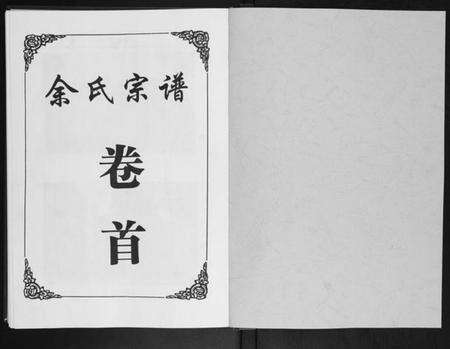 余氏宗谱
卷
首